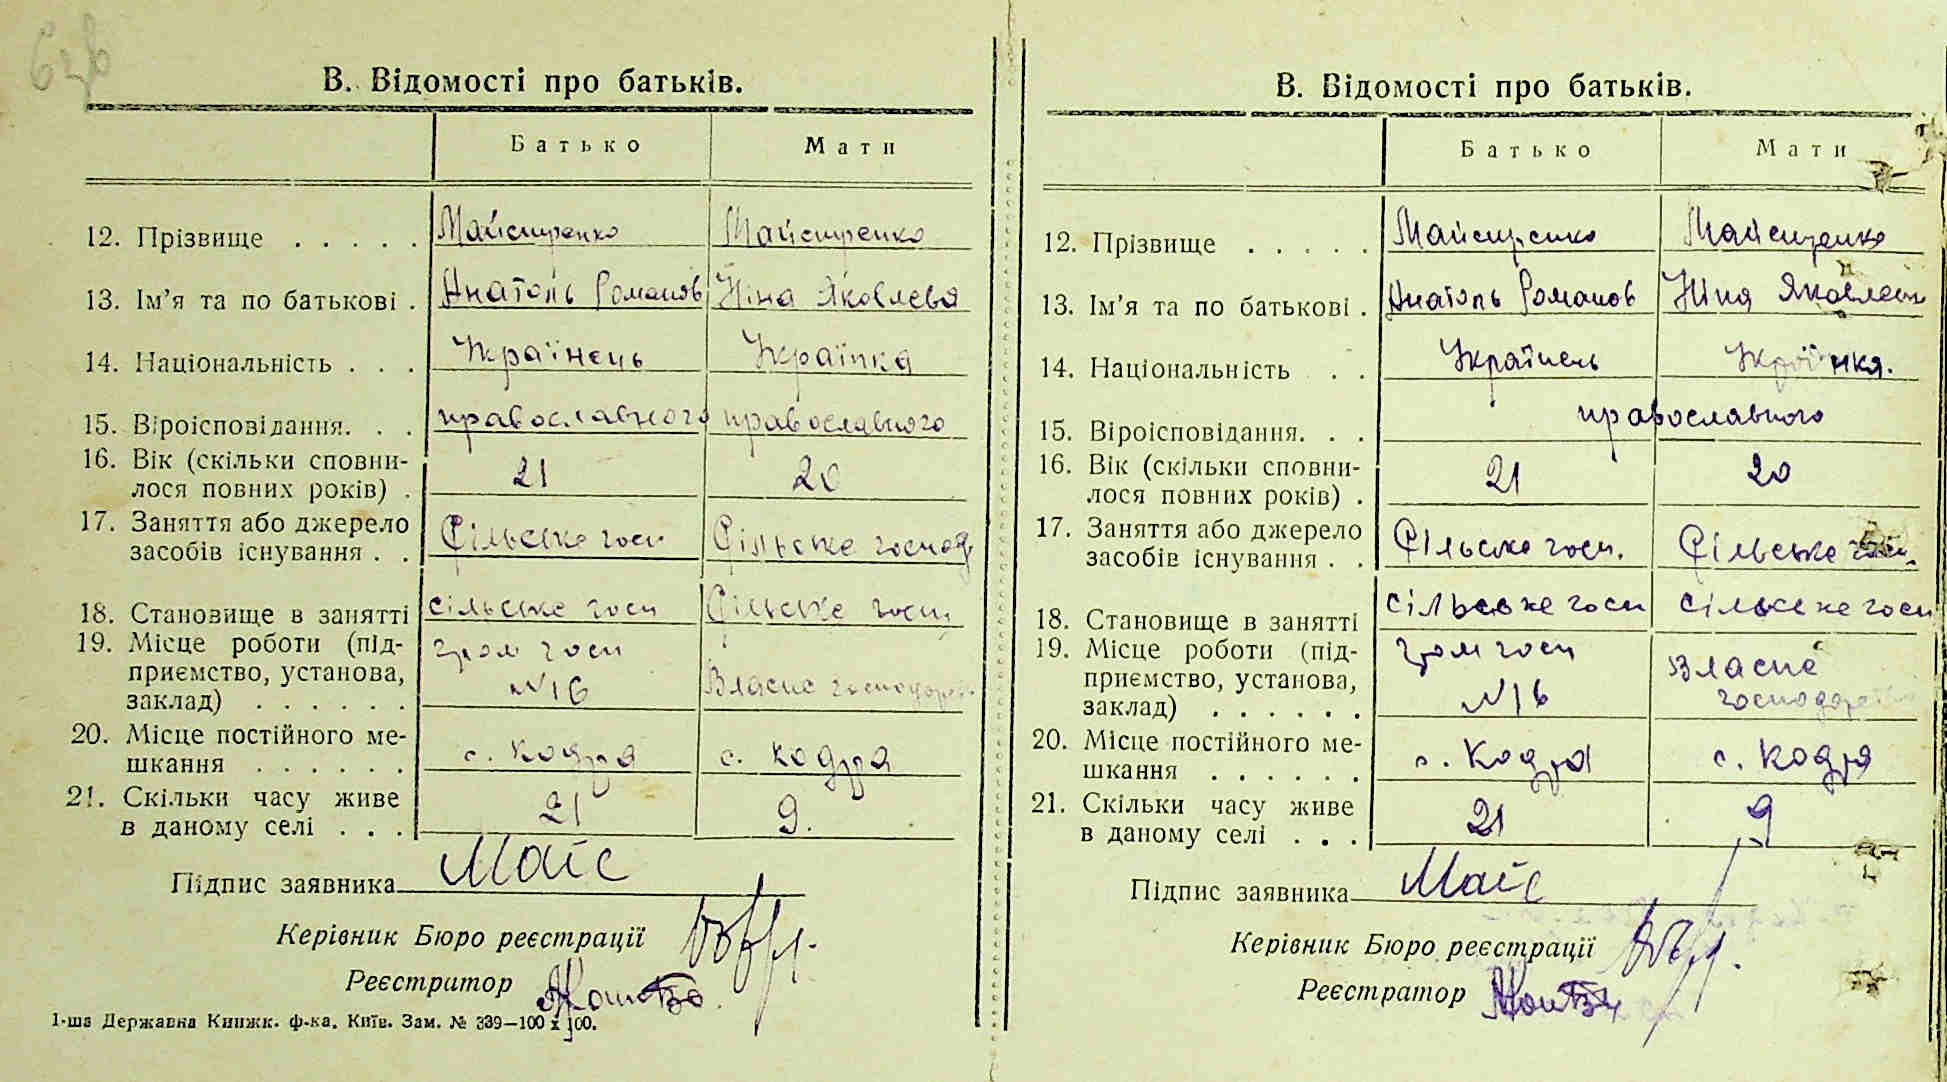 В. Відомості про батьків.
Батько Мати
12. Прізвище . . . . . Майстренко Майстренко
13. Ім'я та по батькові . Анатоль Романов Ніна Яковлева
14. Національність . . . Українець Українка
15. Віроісповідання. . . православного православного
16. Вік (скільки сповни-
лося повних років) . 21 20
17. Заняття або джерело
засобів існування . . Сільське госп Сільське господ
18. Становище в занятті сільське госп Сільське госп
19. Місце роботи (під- гром госп
приємство, установа,
заклад) . . . . . . №16 Власне господар
20. Місце постійного ме-
шкання . . . . . . с. Кодра с. Кодра
21. Скільки часу живе
в даному селі . . . 21 9.
Підпис заявника Майс
Керівник Бюро реєстрації
Реєстратор
1-ша Державна Книжк. ф-ка. Київ. Зам. № 339—100 x 100.
В. Відомості про батьків.
Батько Мати
12. Прізвище . . . . . Майстренко Майстренко
13. Ім'я та по батькові . Анатоль Романов Ніна Яковлевн
14. Національність . . Українець Українка.
15. Віроісповідання. . . православного
16. Вік (скільки сповни-
лося повних років) . 21 20
17. Заняття або джерело
засобів існування . . Сільське госп. Сільське госп.
18. Становище в занятті сільське госп сільське госп
19. Місце роботи (під- гром госп
приємство, установа, Власне
заклад) . . . . . . №16 господар
20. Місце постійного ме-
шкання . . . . . . с. Кодра с. Кодра
21. Скільки часу живе
в даному селі . . . 21 9
Підпис заявника Майс
Керівник Бюро реєстрації
Реєстратор